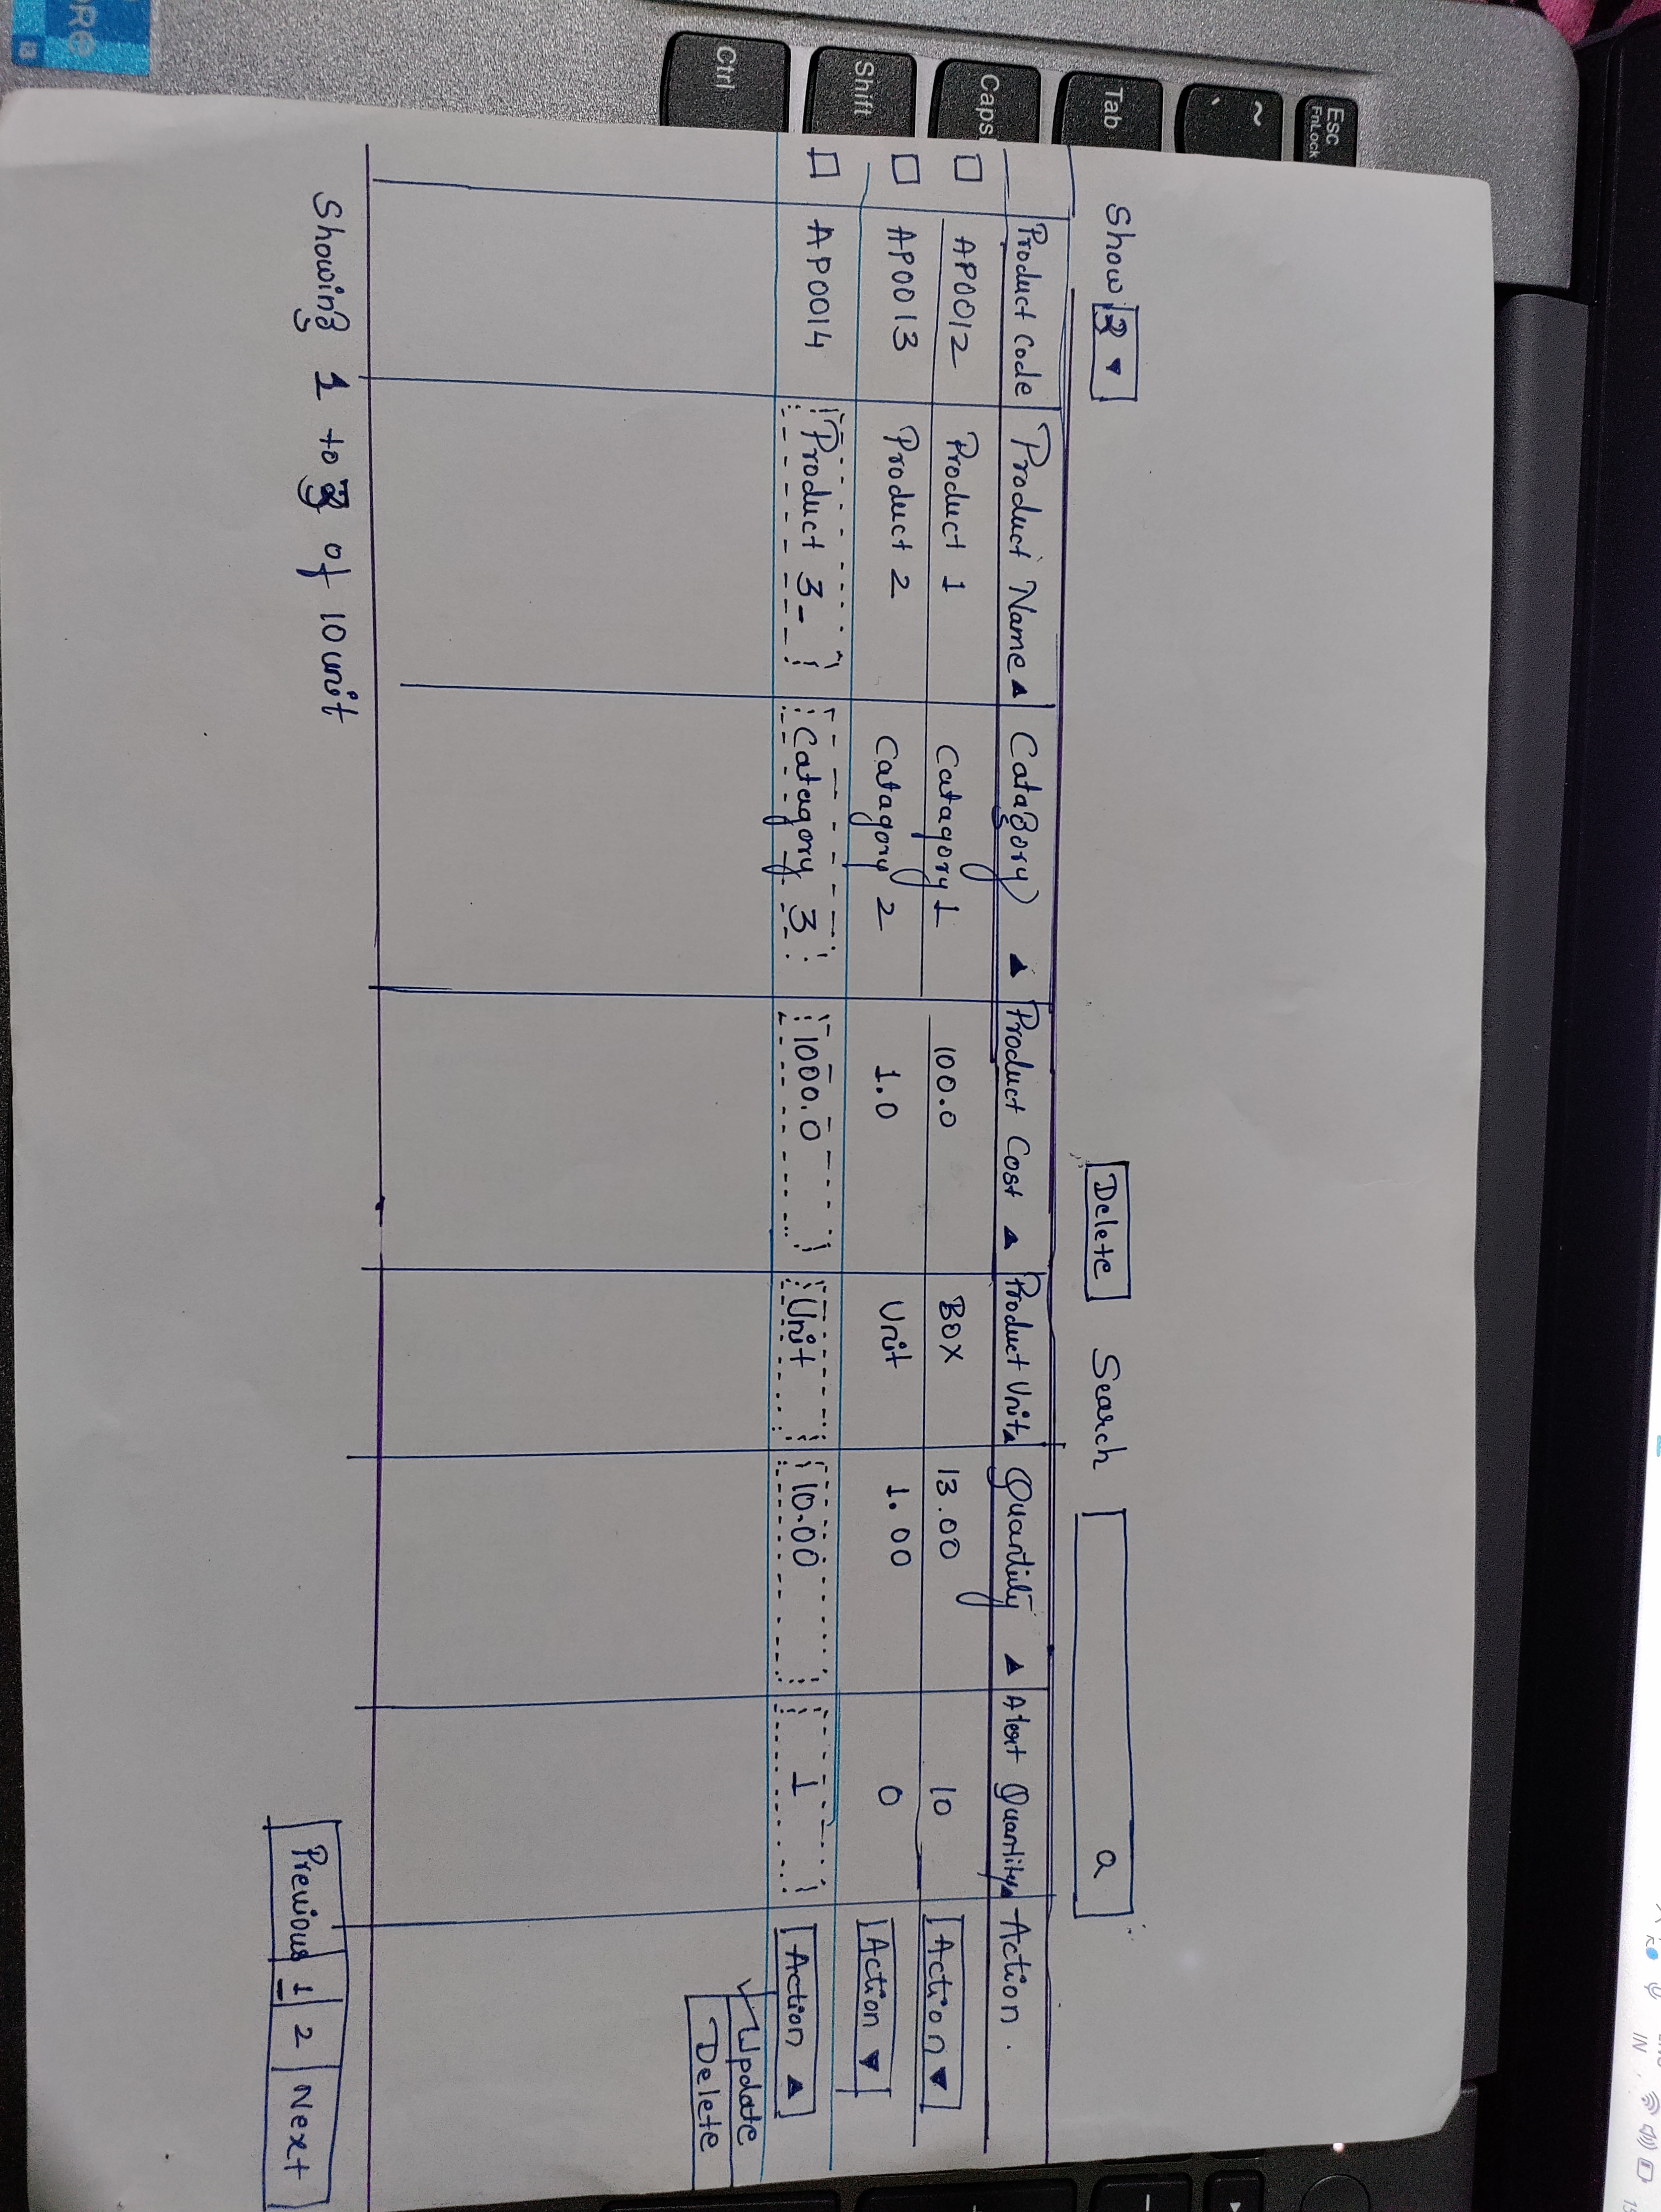 IN
Esc
FnLock
~
`
Tab
Caps
Shift
Ctrl
Show 3 ▼ Delete Search
Product Code Product Name ▲ Catagory ▲ Product Cost ▲ Product Unit ▲ Quantity ▲ Alert Quantity ▲ Action .
AP0012 Product 1 Catagory 1 100.0 BOX 13.00 10 Action ▼
AP0013 Product 2 Catagory 2 1.0 Unit 1.00 0 Action ▼
AP0014 Product 3_ Catagory 3 1000.0 Unit 10.00 1 Action ▲
✓ Update
Delete
Showing 1 to 3 of 10 unit
Previous 1 2 Next
i3